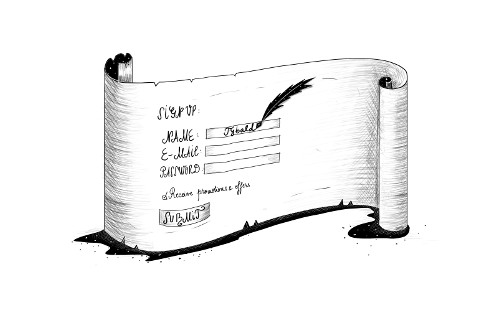 SIGN UP:
NAME: Tybald
E-MAIL:
PASSWORD
Receive promotions & offers
SUBMIT